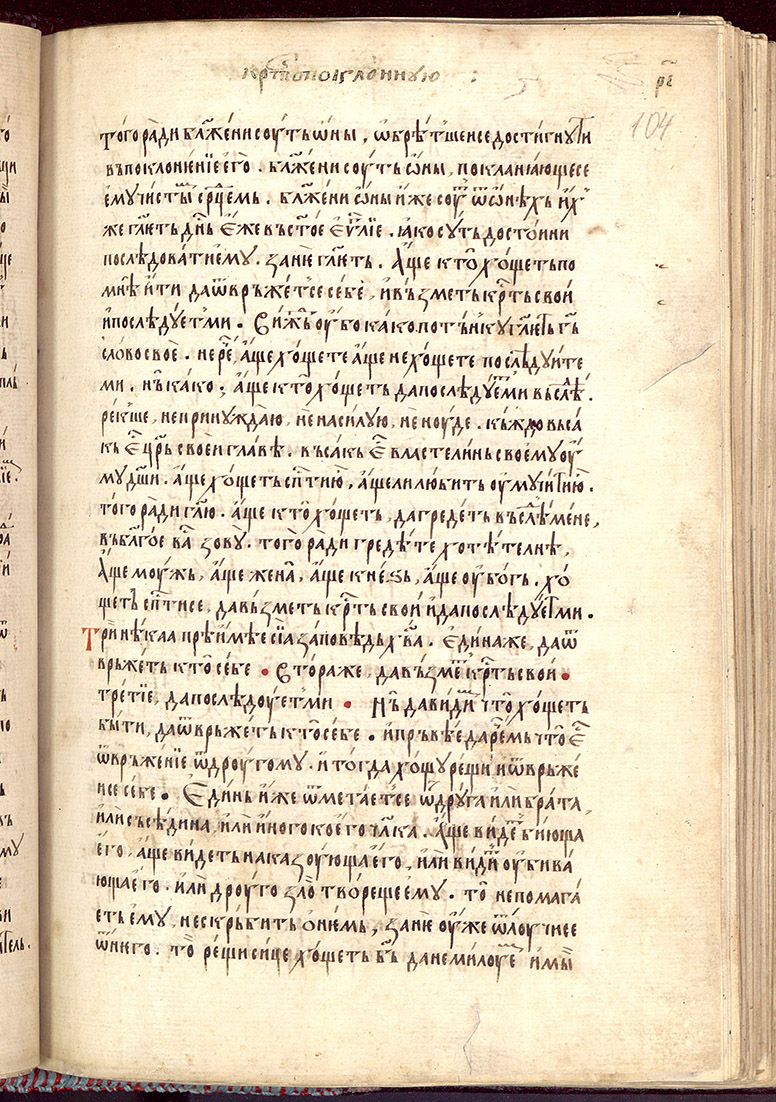 крⷭ҇топоклѡ́нную :
рє҃
104
то́го ра́ди бл҃же́ни соу́ть ѡ҆́ны , ѡ҆брѣ́тшеисе дости́гнꙋти
въ поклоне́нїе є҆го̀ . бл҃же́ни соу́ть ѡ҆́ны , покланꙗ́ющесе
є҆мꙋ̀ чи́стымь срⷣцемь . бл҃же́ни ѡ҆́ны и҆́же соу́ть ѿ ѡ҆нѣ́хь и҆́хⸯ
же гл҃еть дн҃ь є҆́же въ ст҃ое є҆ѵⷢ҇лїе . ꙗ҆ко сꙋ́ть досто́ини
послѣ́довати є҆мꙋ̀ . занѐ гл҃еть . а҆́ще кто̀ хо́щеть по
мнѣ̀ и҆тѝ да ѿврь́жет се себѐ , и҆ въ́зметь крⷭ҇ть свои
и҆ послѣ́дꙋеть мѝ . ви́ждь оу҆̀бо како по тъ́нкꙋ гл҃еть гь҃
сло́во своѐ . не речѐ , а҆́ще хо́щете а҆́ще не хо́щете послѣ́дꙋите
ми . нь ка́ко ; а҆́ще кто̀ хо́щеть да послѣ́дꙋеть ми вь слѣ́дь .
ре́кше , не принꙋжда́ю , не наси́лꙋю , не ноу́де . къ́ждо вьса́
кь є҆ⷭ҇ цр҃ь свое́и главѣ̀ . въса́кь є҆ⷭ҇ власте́линь своемꙋ̀ оу҆
мꙋ̀ дш҃и . а҆́ще хо́щеть сп҃сти ю҆̀ , а҆́ще ли лю́бить оу҆мꙋ́чити ю҆̀ .
то́го ра́ди гл҃ю . а҆́ще кто̀ хо́щеть , да греде́ть въ слѣ́дь мене ,
въ бл҃го́е ва́сь зовꙋ̀ . то́го ра́ди греде́те хотѣ́телнѣ ,
а҆́ще моу́жь , а҆́ще жена̀ , а҆́ще кне́ѕь , а҆́ще оу҆бо́гь . хо́
щеть сп҃сти се , да вь́зметь крⷭ҇ть свои и҆ да послѣ́дꙋеть мѝ .
Три нѣ́каа прѣи́мѣе сїа за́повѣдь хв҃а . є҆ди́на же , да ѿ
врь́жеть кто̀ себѐ . вто́ра же , да въ́зметь крⷭ҇ть свои .
тре́тїе , да послѣ́доуеть мѝ . нь да ви́димь что̀ хо́щеть
бы́ти , да ѿврь́жеть кто̀ себѐ . и҆ пръ́вѣе да рече́мь что̀ є҆ⷭ҇
ѿврьже́нїе ѿ дроу́гомꙋ . и҆ тогда̀ хо́щꙋ рещѝ и҆ ѿврь́же
и се себѐ . є҆ди́нь и҆́же ѿмета́ет се ѿ дрꙋ́га и҆лѝ бра́та ,
и҆лѝ съсѣ́дина , и҆лѝ и҆́ного ко́его чл҃ка . а҆́ще ви́деть бию́ща
є҆го̀ , а҆́ще ви́деть наказоу́юща є҆го̀ , и҆лѝ ви́дить оу҆бива́
юща є҆го̀ . и҆лѝ дроу́го зло̀ тво́реще є҆мꙋ̀ . то̀ не помага́
еть є҆мꙋ̀ , не скрь́бить ѡ не́мь , занѐ оу҆́же ѿлоу́чи се
ѿ него . то̀ рещѝ си́це хо́щеть бь҃ да не ми́лоуеть и҆ мы̀